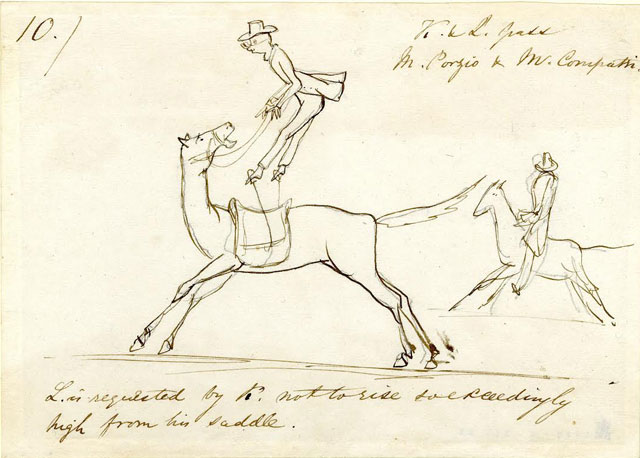 10.)
K. & L. pass
M. Porzio & M. Compatri.
L. is requested by K. not to rise so exceedingly
high from his saddle.